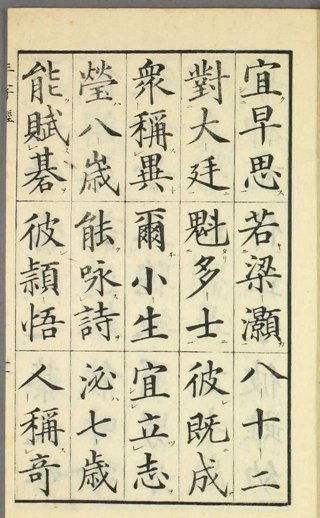 宜早思若梁灝八十二
對大廷魁多士彼既成
衆稱異爾小生宜立志
瑩八歳能咏詩泌七歳
能賦碁彼頴悟人稱竒
三字經